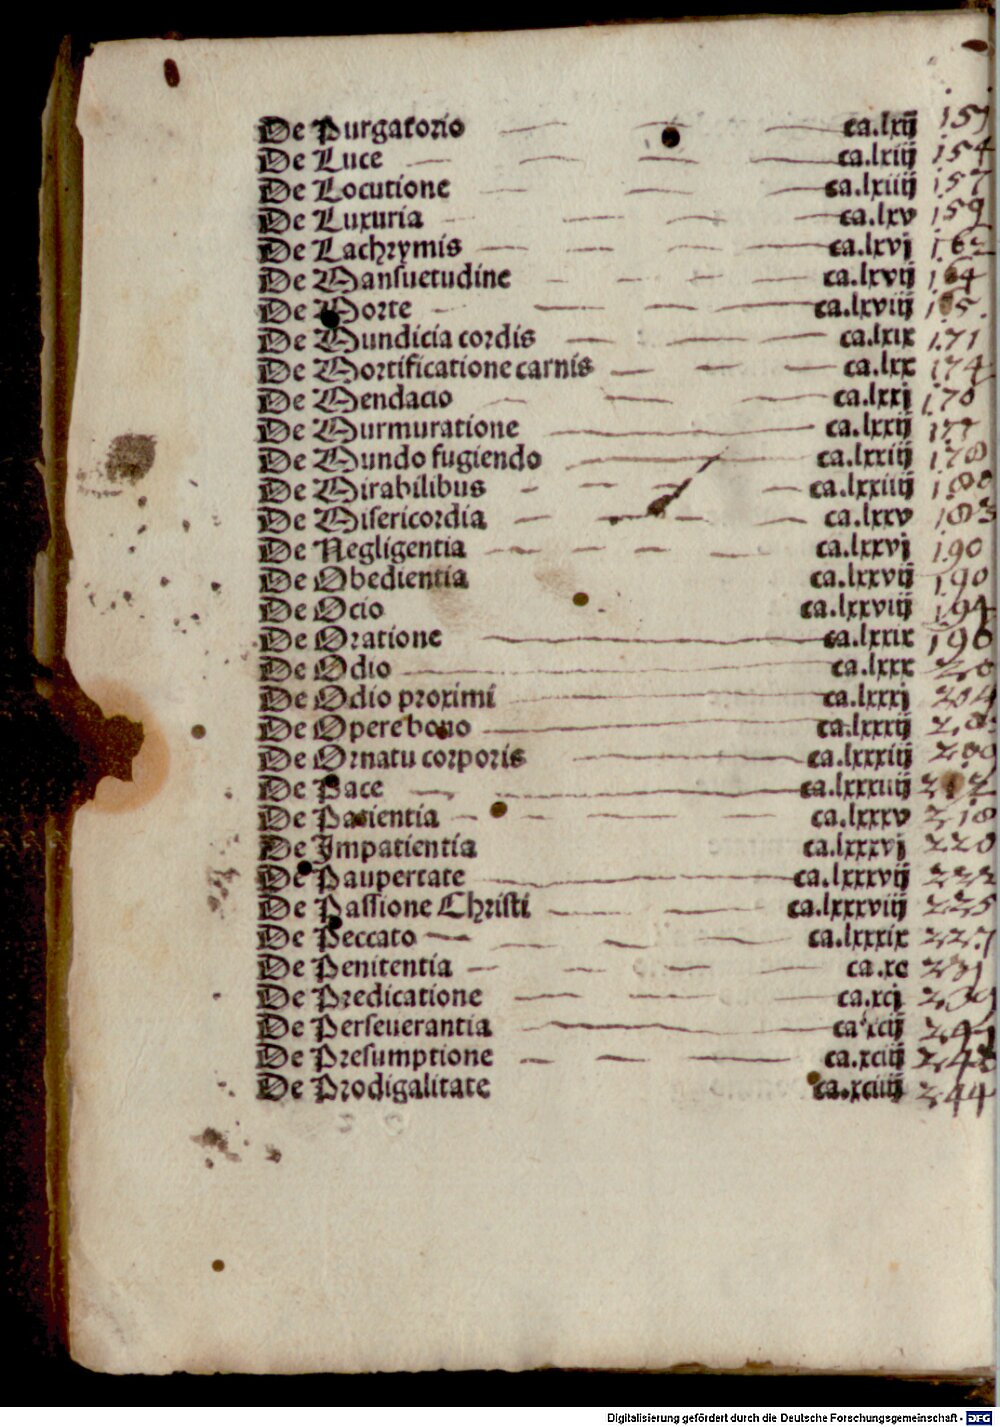 De Purgatorio ca.lxij
De Luce ca.lxiij 154
De Locutione ca.lxiiij 157
De Luxuria ca.lxv 159
De Lachrymis ca.lxvj 162
De Mansuetudine ca.lxvij 164
De Morte ca.lxviij
De Mundicia cordis ca.lxix 171
De Mortificatione carnis ca.lxx 174
De Mendacio ca.lxxj 176
De Murmuratione ca.lxxij 177
De Mundo fugiendo ca.lxxiij 178
De Mirabilibus ca.lxxiiij 180
De Misericordia ca.lxxv 183
De Negligentia ca.lxxvj 190
De Obedientia ca.lxxvij 190
De Ocio ca.lxxviij 194
De Oratione ca.lxxix 196
De Odio ca.lxxx
De Odio proximi ca.lxxxj 204
De Opere bono ca.lxxxij
De Ornatu corporis ca.lxxxiij 209
De Pace ca.lxxxiiij
De Patientia ca.lxxxv 218
De Impatientia ca.lxxxvj 220
De Paupertate ca.lxxxvij 222
De Passione Christi ca.lxxxviij 225
De Peccato ca.lxxxix 227
De Penitentia ca.xc 231
De Predicatione ca.xcj 239
De Perseuerantia ca.xcij 241
De Presumptione ca.xciij 243
De Prodigalitate ca.xciiij 244
Digitalisierung gefördert durch die Deutsche Forschungsgemeinschaft - DFG